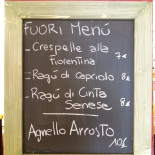 FUORI MENÚ
- Crespelle alla
Fiorentina 7€
- Ragú di Capriolo 8€
- Ragú di CINTA
Senese 8€
Agnello ARROSTO
10€